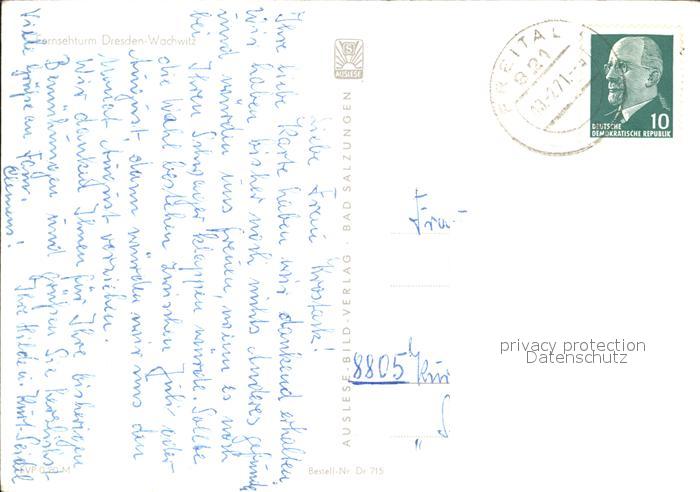 Fernsehturm Dresden-Wachwitz
Liebe Frau
Ihre liebe Karte haben wir dankend erhalten.
Wir haben bisher noch nichts Anderes gefunden
und würden uns freuen, wenn es noch
bei Ihrem Schwager klappen würde. Sollte
die Wahl bestehen zwischen Juli oder
August, dann würden wir uns den
Monat August
Wir danken Ihnen für Ihre bisherigen
Bemühungen und grüßen Sie herzlichst
Ihre Hilde u. Kurt Seidel
Viele Grüße an Fam.
Clemens!
EVP 0,20 M
AUSLESE
AUSLESE-BILD-VERLAG · BAD SALZUNGEN
Bestell-Nr. Dr 715
FREITAL
821
DEUTSCHE
DEMOKRATISCHE REPUBLIK
10
Frau
8805
privacy protection
Datenschutz